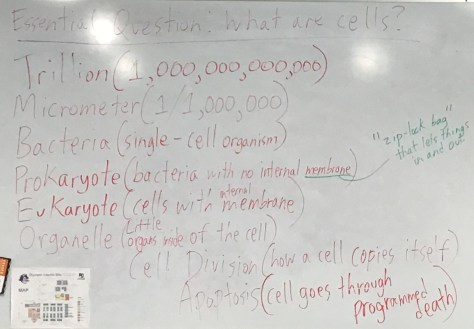 Essential Question: What are cells?
Trillion (1,000,000,000,000)
Micrometer (1/1,000,000)
Bacteria (single-cell organism)
"zip-lock bag"
that lets things
in and out
Prokaryote (bacteria with no internal membrane)
Eukaryote (cells with internal membrane)
Organelle (Little organs made of the cell)
Cell Division (how a cell copies itself)
Apoptosis (cell goes through
programmed
death)